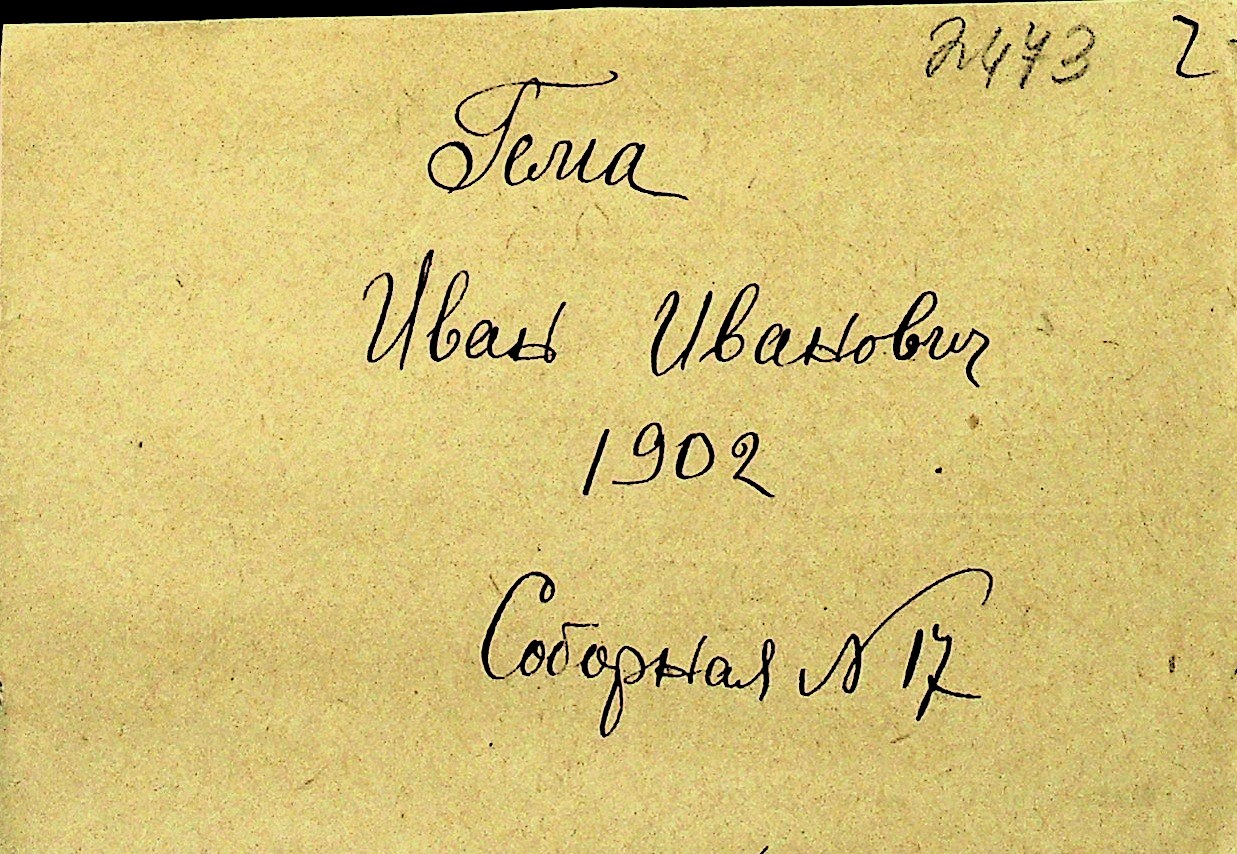 2473 2
Гема
Иван Иванович
1902
Соборная N 17